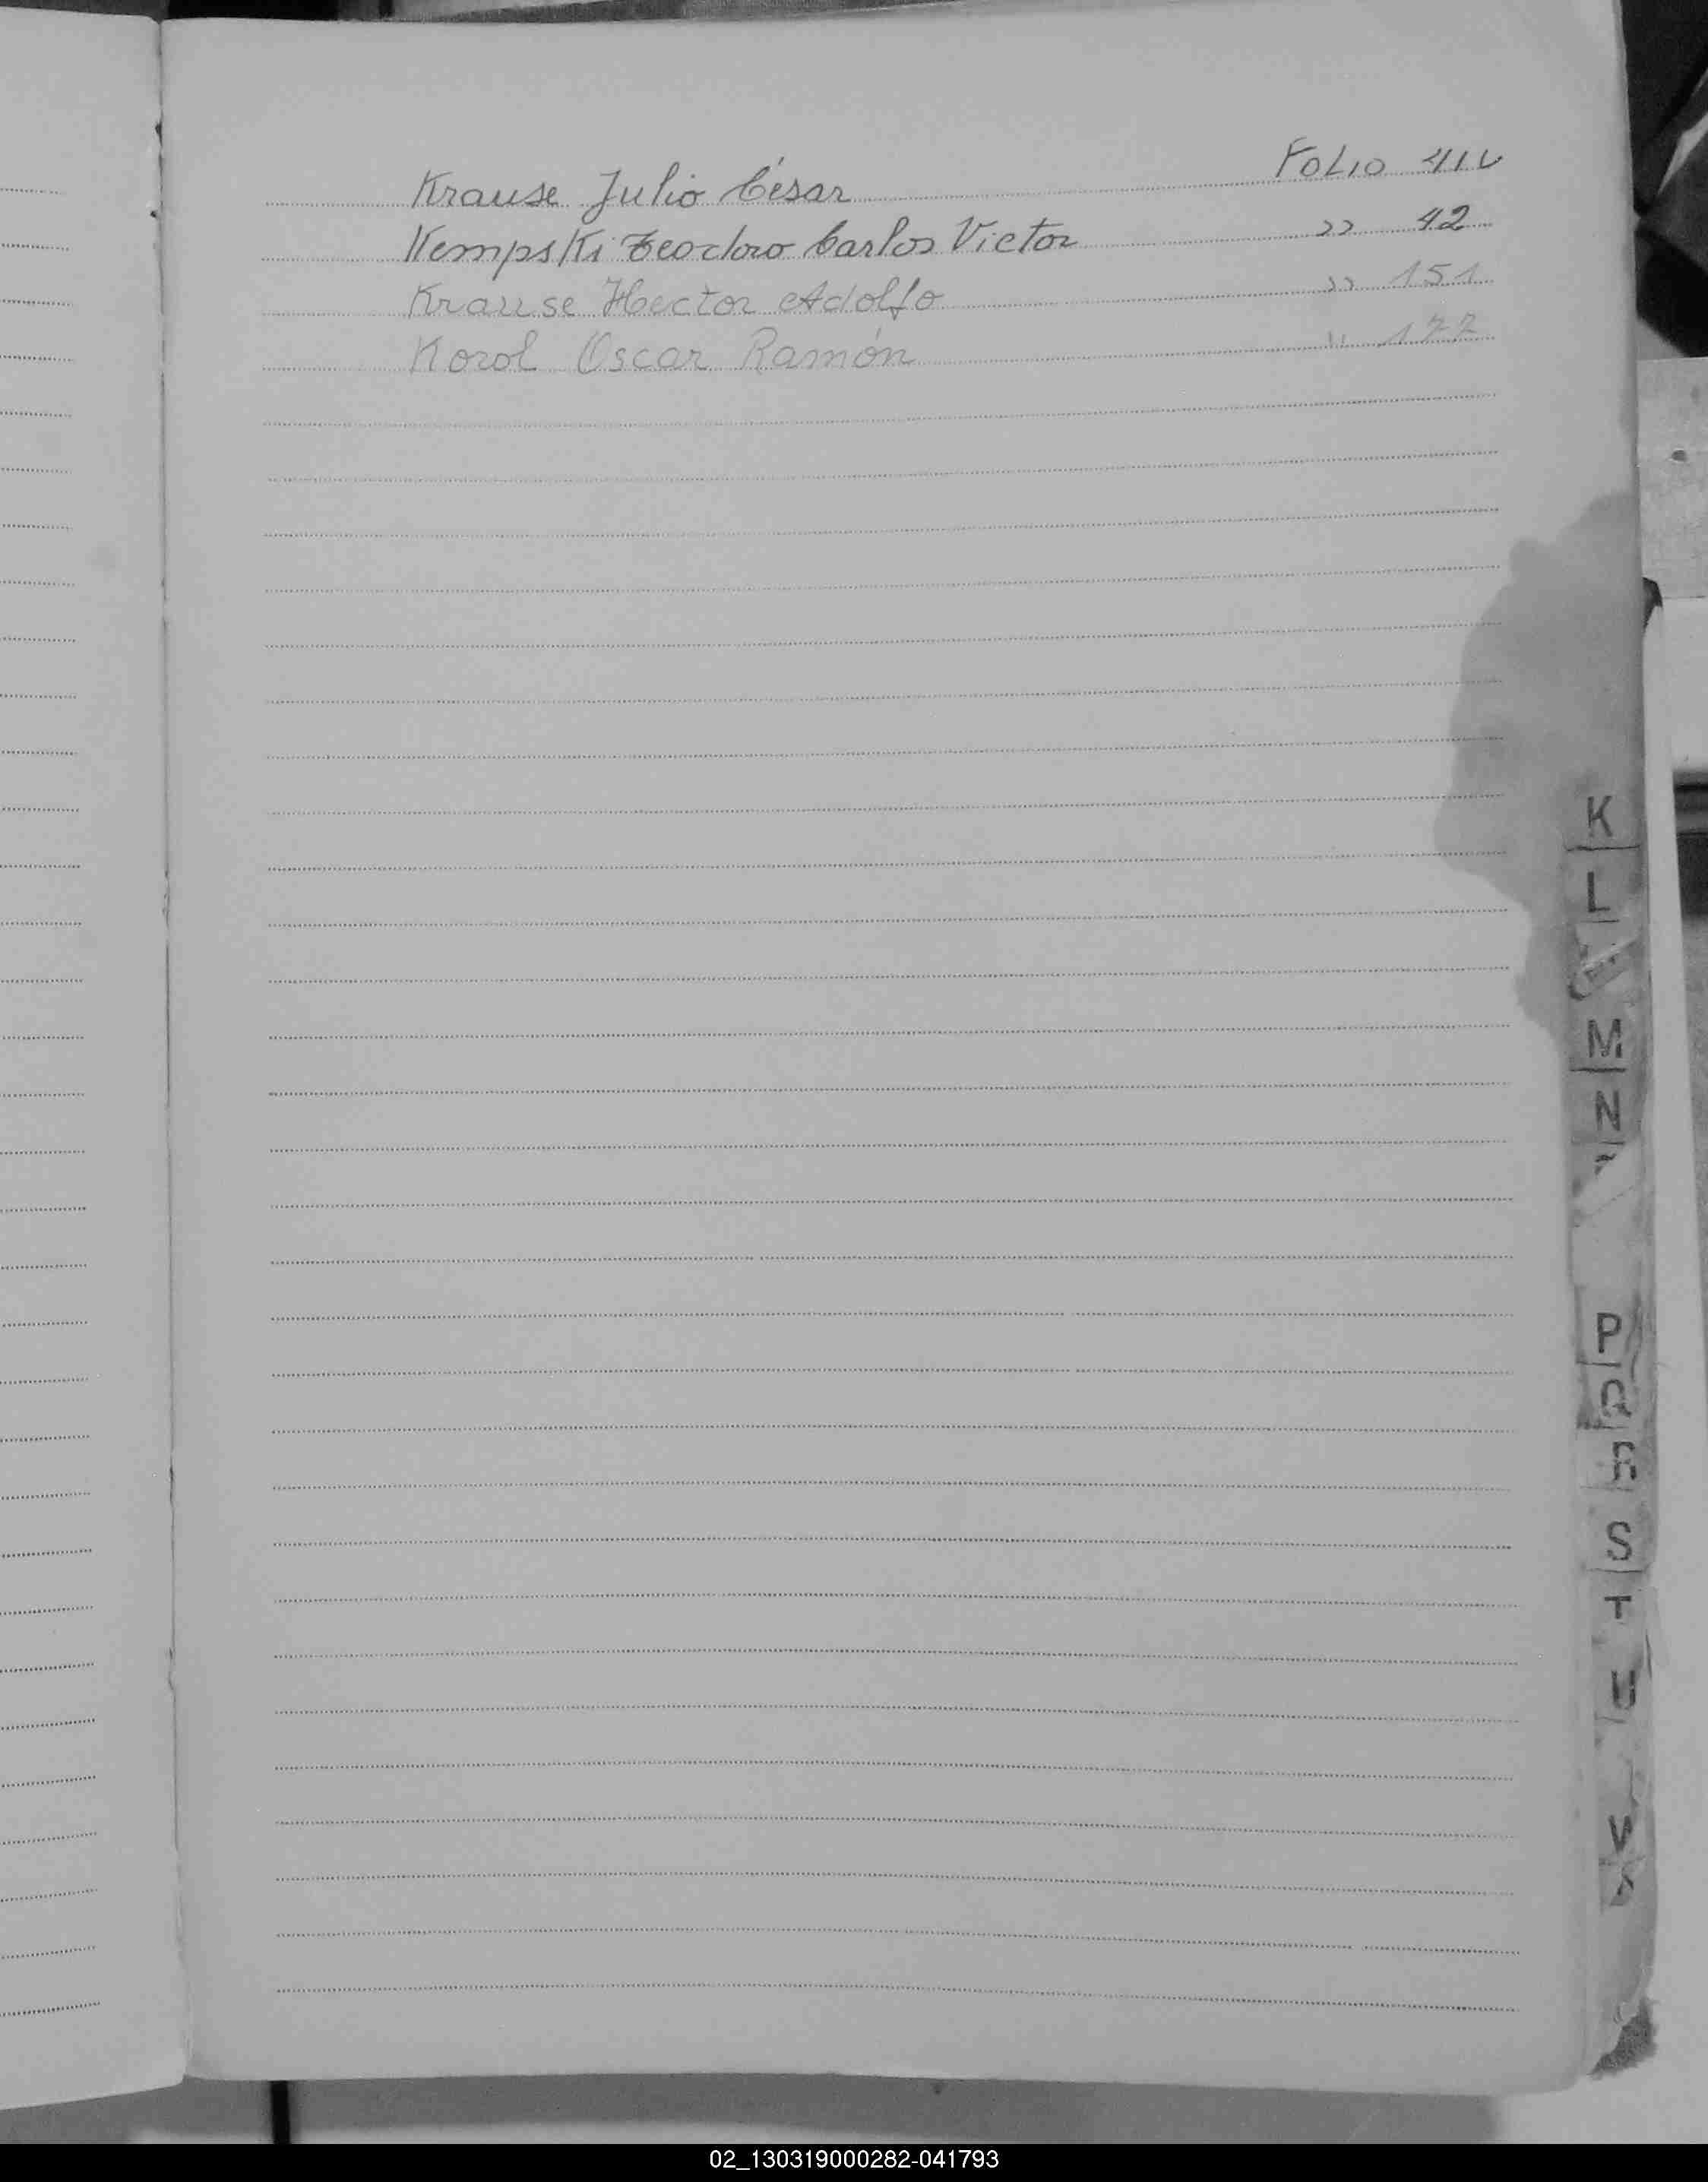 Krause Julio César FOLIO 41V
Kempski Teodoro Carlos Victor " 42
Krause Hector Adolfo " 151
Korol Oscar Ramón " 177
K
L
M
N
P
Q
R
S
T
U
V
02_130319000282-041793